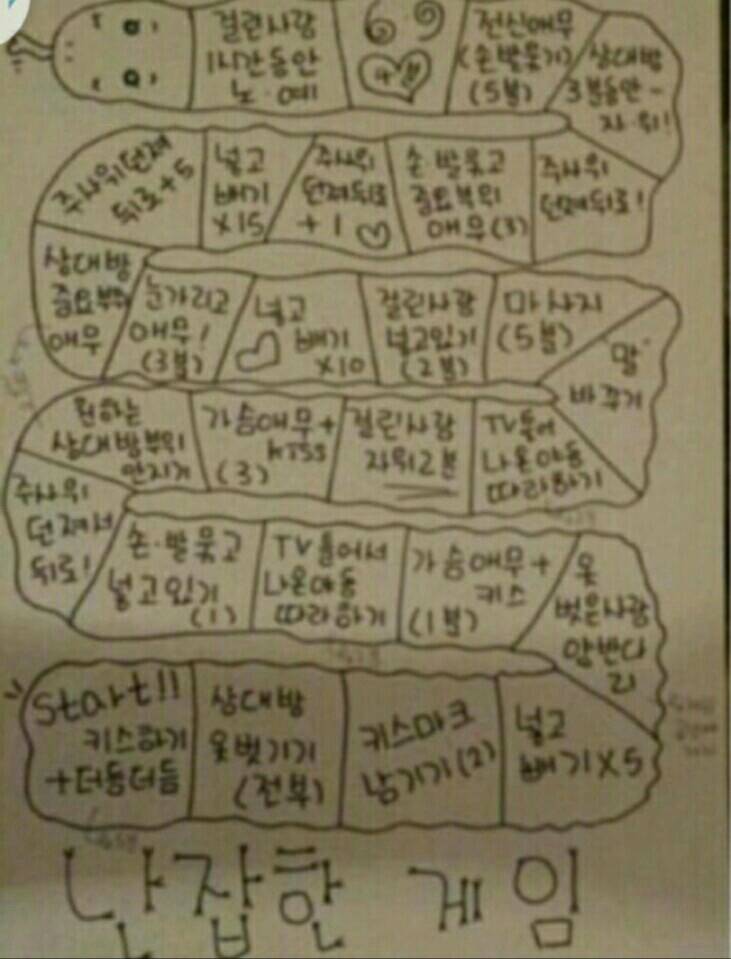 걸린사람
1시간동안
노·예
69
전신애무
(손발묶기)
(5분)
상대방
3분동안-
자·위!
주사위던져
뒤로+5
넣고
빼기
X15
주사위
던져뒤로
+1
손·발묶고
중요부위
애무(3)
주사위
던져뒤로!
상대방
중요부위
애무
눈가리고
애무!
(3분)
넣고
빼기
X10
걸린사람
넣고있기
(2분)
마사지
(5분)
"말"
바꾸기
원하는
상대방부위
만지기
가슴애무+
KISS
(3)
걸린사람
자위2분
TV틀어
나온야동
따라하기
주사위
던져서
뒤로!
손·발묶고
넣고있기
(1)
TV틀어서
나온야동
따라하기
가슴애무+
키스
(1분)
옷
벗은사람
Start!!
키스하기
+더듬더듬
상대방
옷벗기기
(전부)
키스마크
남기기(2)
넣고
빼기X5
난잡한 게임